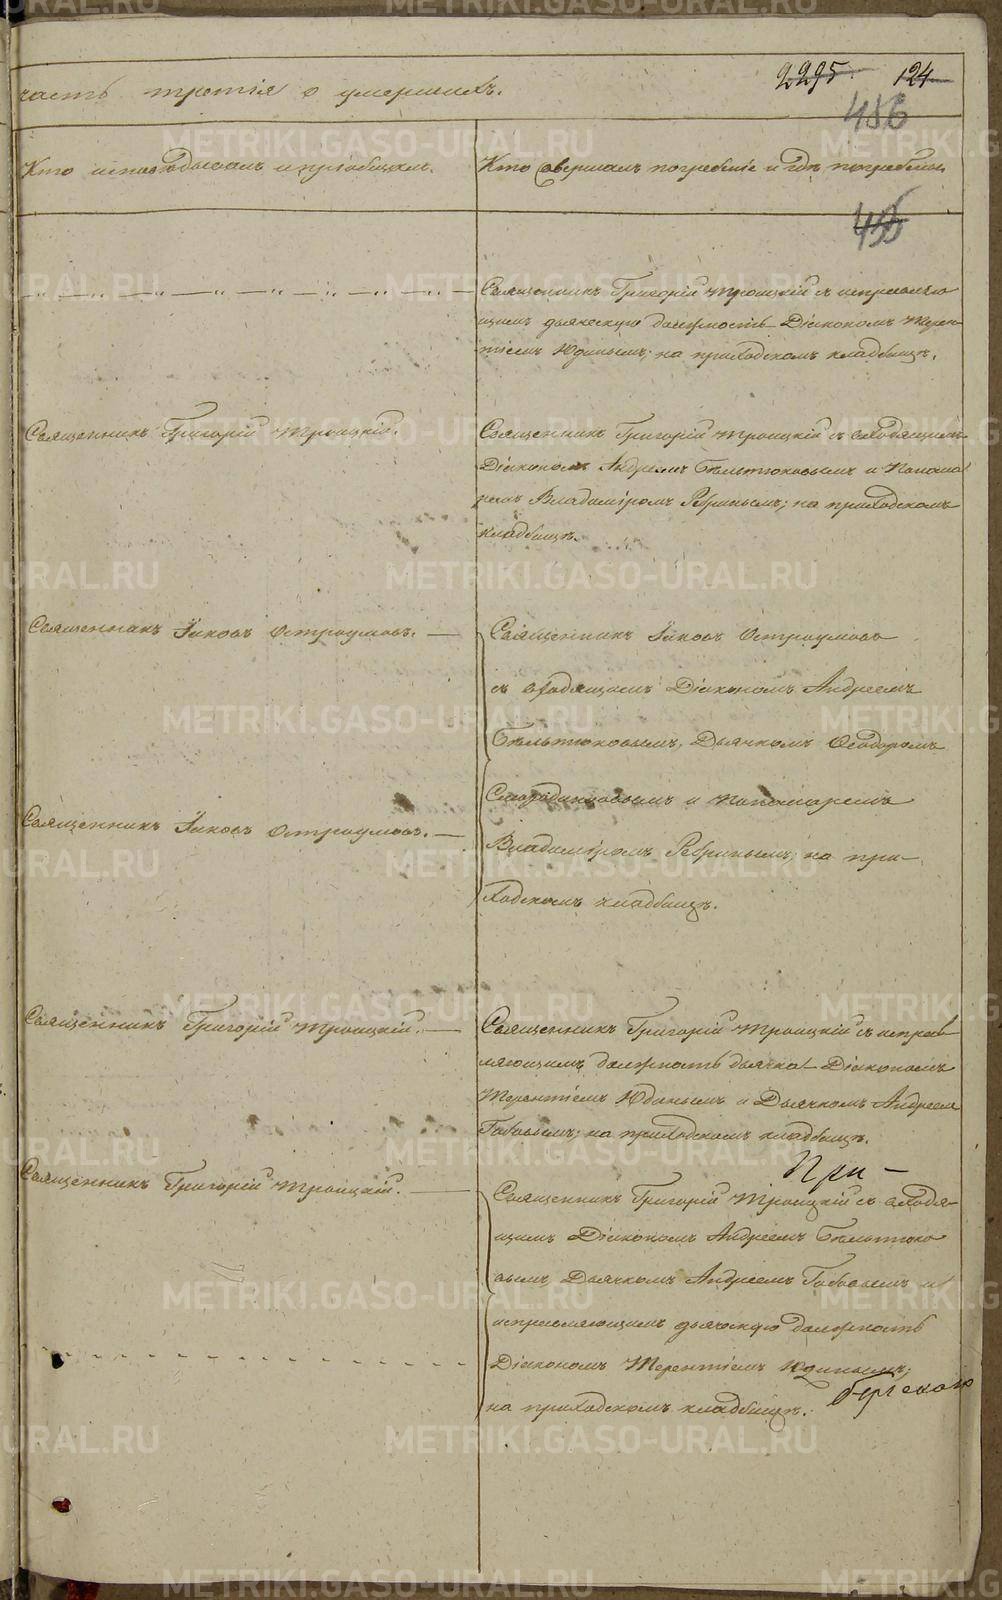 2295 124
часть третія о умершихъ.
456
Кто исповѣдывалъ и пріобщалъ.
Кто совершалъ погребеніе и гдѣ погребены.
456
Священникъ Григорій Троицкій съ исправляю
щимъ дьяческую должность Діакономъ Терен-
тіемъ Юдинымъ; на приходскомъ кладбищѣ.
Священникъ Григорій Троицкій.
Священникъ Григорій Троицкій съ
Діакономъ Андреемъ Бѣльтюковымъ и Понома
ремъ Владиміромъ Ребринымъ; на приходскомъ
кладбищѣ.
Священникъ Іаковъ Остроумовъ.
Священникъ Іаковъ Остроумовъ
съ Діакономъ Андреемъ
Бѣльтюковымъ, Дьячкомъ Ѳеодоромъ
и Пономаремъ
Священникъ Іаковъ Остроумовъ.
Владиміромъ Ребринымъ; на при-
ходскомъ кладбищѣ.
Священникъ Григорій Троицкій.
Священникъ Григорій Троицкій съ исправ
ляющимъ должность дьячка Діакономъ
Терентіемъ Юдинымъ и Дьячкомъ Андреемъ
на приходскомъ кладбищѣ.
При-
Священникъ Григорій Троицкій.
Священникъ Григорій Троицкій съ
щимъ Діакономъ Андреемъ Бѣльтюко
вымъ, Дьячкомъ Андреемъ и
исправляющимъ дьяческую должность
Діакономъ Терентіемъ Юдинымъ;
на приходскомъ кладбищѣ.
METRIKI.GASO-URAL.RU